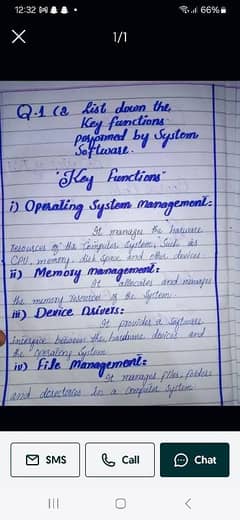 12:32
66%
1/1
Q.1 (a List down the
Key functions
performed by System
Software.
"Key Functions"
i) Operating System Management:
It manages the
resources of the Computer System, Such as
CPU, memory, disk space and other devices.
ii) Memory management:
It allocates and manages
the memory resources of the System.
iii) Device Drivers:
It provides a Software
interface between the hardware devices and
the Operating System
iv) File Management:
It manages files, folders
and directories in a computer System
SMS
Call
Chat